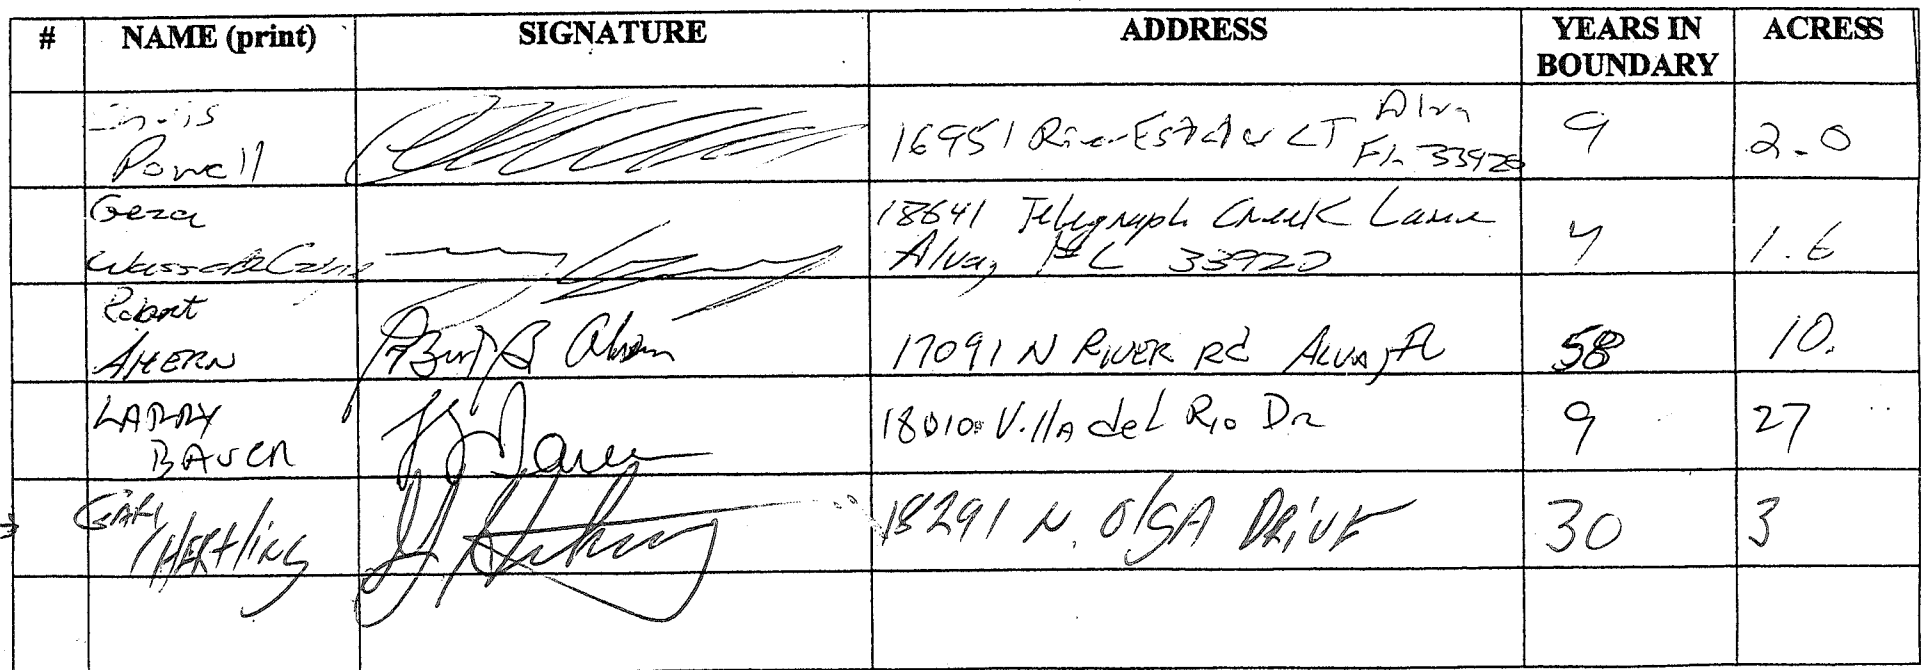 # NAME (print) SIGNATURE ADDRESS YEARS IN BOUNDARY ACRESS
Chris Powell 16951 River Estates CT Alva Fl. 33920 9 2.0
Geza 18641 Telegraph Creek Lane Alva, FL 33920 4 1.6
Robert AHERN 17091 N RIVER Rd ALVA, FL 58 10.
LARRY BAUER 18010 Villa del Rio Dr 9 27
GARY HERTling 18291 N. OlGA DRiVE 30 3